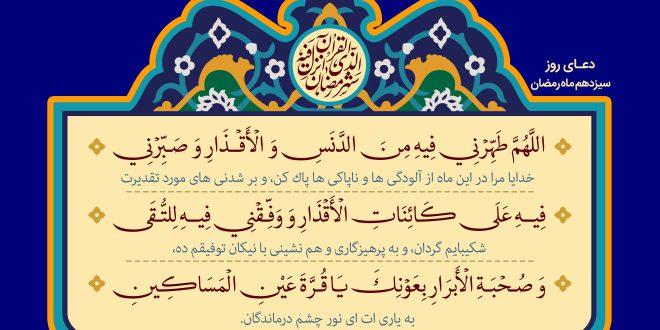 دعـای روز
سیزدهم ماه رمضان
شهر رمضان الذی انزل فیه القرآن
اللَّهُمَّ طَهِّرْنِي فِيهِ مِنَ الدَّنَسِ وَ الْأَقْذَارِ وَ صَبِّرْنِي
خدایا مرا در این ماه از آلودگی ها و ناپاکی ها پاك كن، و بر شدنی های مورد تقدیرت
فِيهِ عَلَى كَائِنَاتِ الْأَقْدَارِ وَ وَفِّقْنِي فِيهِ لِلتُّقَى
شکیبایم گردان، و به پرهیزگاری و هم نشینی با نیکان توفیقم ده،
وَ صُحْبَةِ الْأَبْرَارِ بِعَوْنِكَ يَا قُرَّةَ عَيْنِ الْمَسَاكِينِ
به یاری ات ای نور چشم درماندگان.